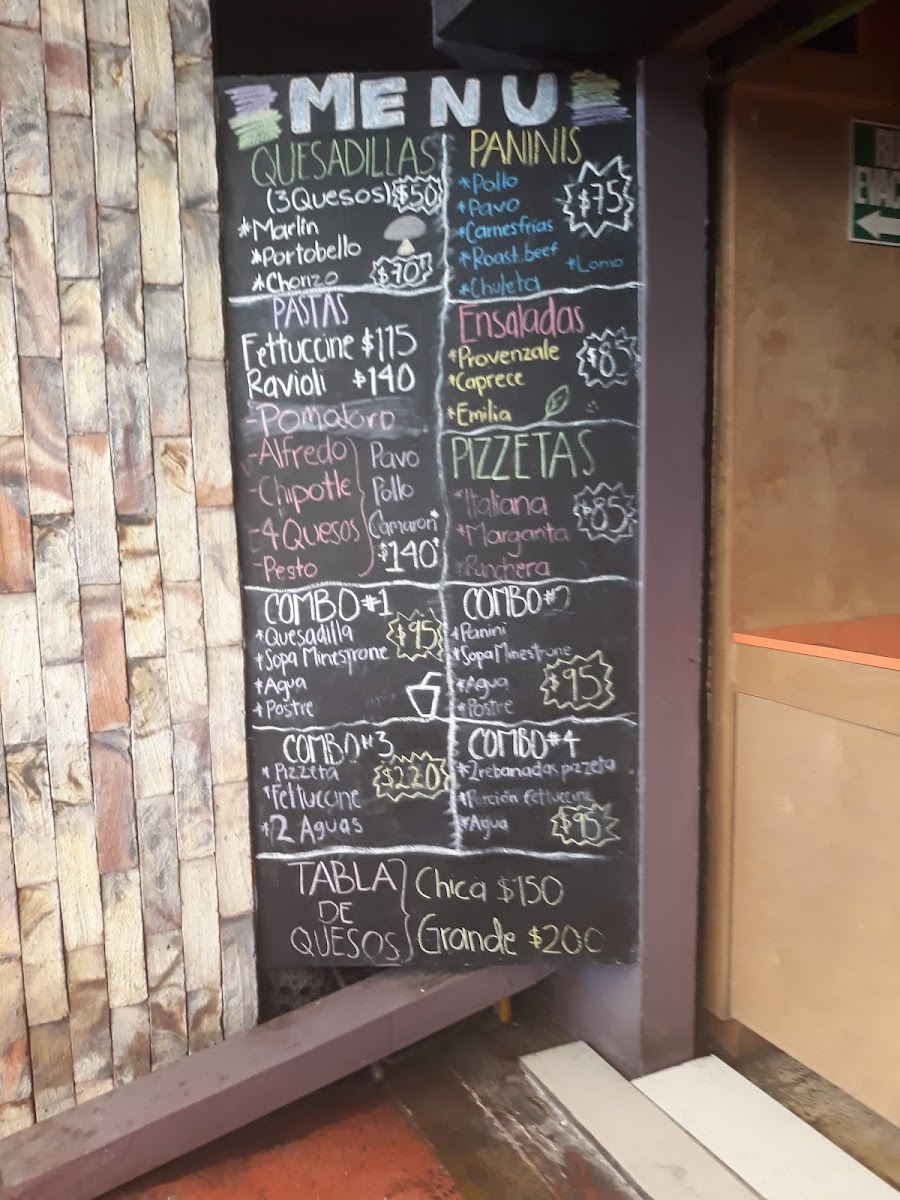 MENU
QUESADILLAS
(3 Quesos) $50
*Marlin
*Portobello
*Chorizo $70
PANINIS
*Pollo $75
*Pavo
*Carnesfrías
*Roast beef *Lomo
*Chuleta
PASTAS
Fettuccine $115
Ravioli $140
-Pomodoro
-Alfredo
-Chipotle
-4 Quesos
-Pesto
Pavo
Pollo
Camaron*
$140*
Ensaladas
*Provenzale $85
*Caprece
*Emilia
PIZZETAS
*Italiana $85
*Margarita
*Ranchera
COMBO #1
*Quesadilla $95
*Sopa Minestrone
*Agua
*Postre
COMBO #2
*Panini
*Sopa Minestrone
*Agua $95
*Postre
COMBO #3
*Pizzeta $220
*Fettuccine
*2 Aguas
COMBO #4
*2 rebanadas pizzeta
*Porción fettuccine
*Agua $95
TABLA DE QUESOS
Chica $150
Grande $200